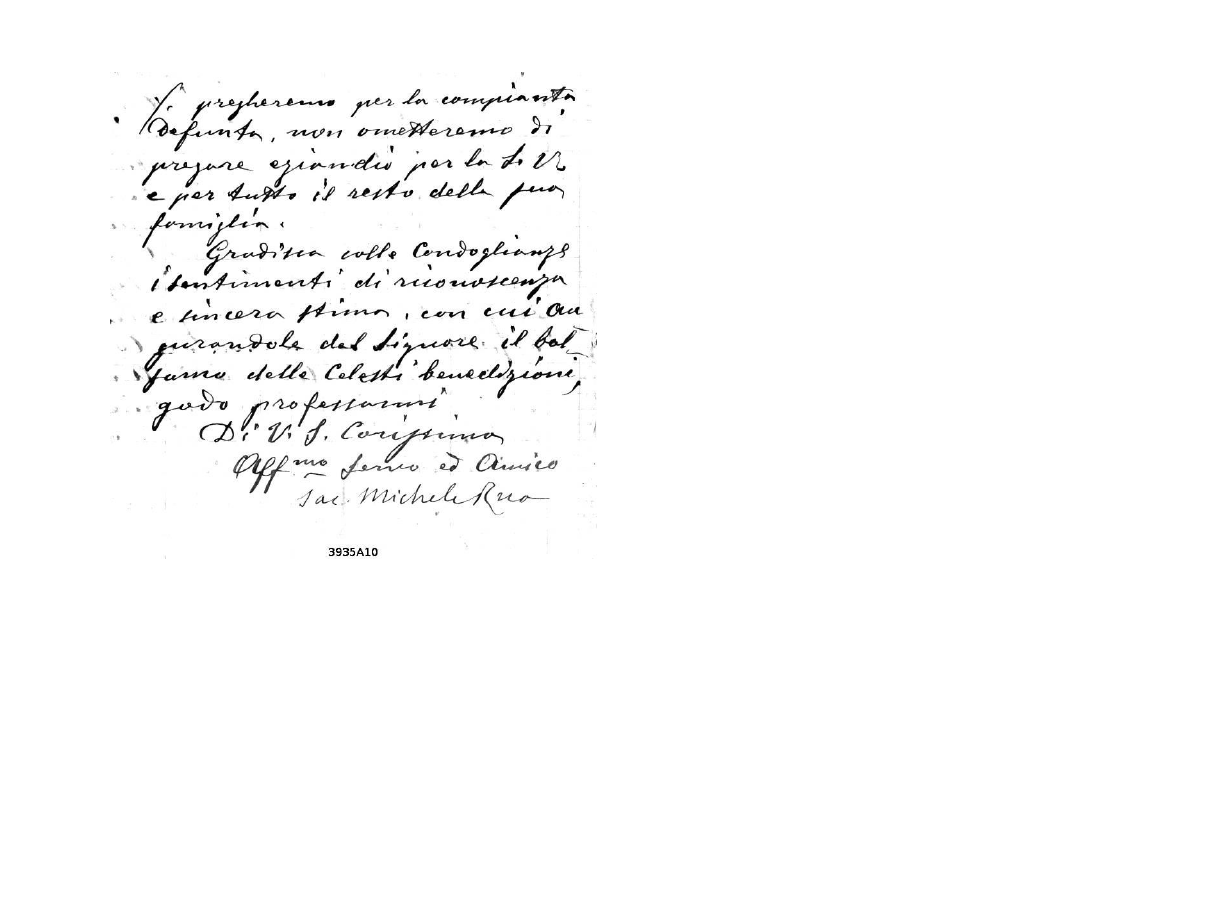 pregheremo per la compianta
Defunta, non ometteremo di
pregare eziandio per la S. V.
e per tutto il resto della sua
famiglia.
Gradisca colle Condoglianze
i sentimenti di riconoscenza
e sincera stima, con cui au
gurandole dal Signore il bal-
samo delle Celesti benedizioni,
godo professarmi
Di V. S. Carissima
Aff.mo Servo ed Amico
Sac. Michele Rua
3935A10